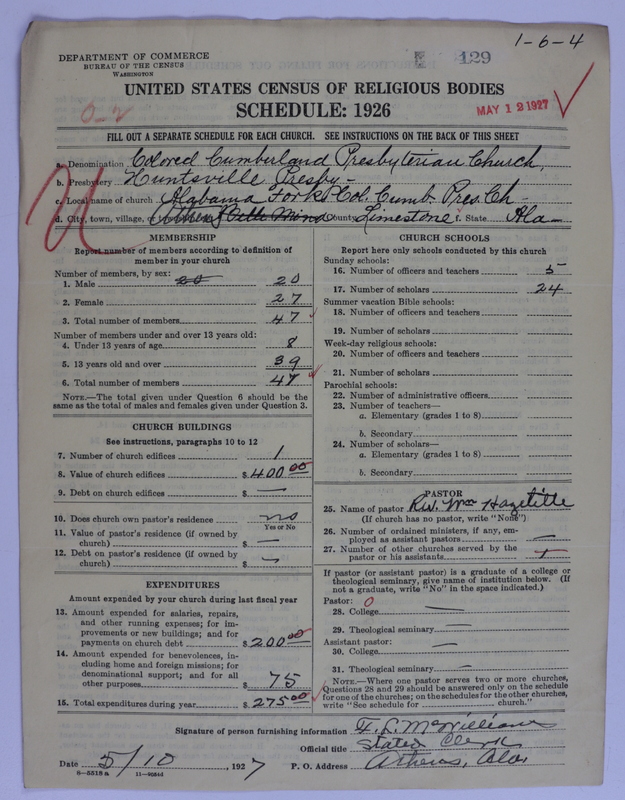 1-6-4
DEPARTMENT OF COMMERCE
BUREAU OF THE CENSUS
WASHINGTON
129
UNITED STATES CENSUS OF RELIGIOUS BODIES
SCHEDULE: 1926
MAY 12 1927
FILL OUT A SEPARATE SCHEDULE FOR EACH CHURCH. SEE INSTRUCTIONS ON THE BACK OF THIS SHEET
a. Denomination Colored Cumberland Presbyterian Church
b. Presbytery Huntsville Presby-
c. Local name of church Alabama Fork Col. Cumb. Pres. Ch-
d. City, town, village, County Limestone State Ala-
MEMBERSHIP
Report number of members according to definition of
member in your church
Number of members, by sex:
1. Male 20 20
2. Female 27
3. Total number of members 47
Number of members under and over 13 years old:
4. Under 13 years of age 8
5. 13 years old and over 39
6. Total number of members 47
NOTE.—The total given under Question 6 should be
same as the total of males and females given under Question 3.
CHURCH BUILDINGS
See instructions, paragraphs 10 to 12
7. Number of church edifices 1
8. Value of church edifices $ 400.00
9. Debt on church edifices $ —
10. Does church own pastor's residence no
Yes or No
11. Value of pastor's residence (if owned by
church) $ —
12. Debt on pastor's residence (if owned by
church) $ —
EXPENDITURES
Amount expended by your church during last fiscal year
13. Amount expended for salaries, repairs,
and other running expenses; for im-
provements or new buildings; and for
payments on church debt $ 200.00
14. Amount expended for benevolences, in-
cluding home and foreign missions; for
denominational support; and for all
other purposes $ 75
15. Total expenditures during year $ 275.00
CHURCH SCHOOLS
Report here only schools conducted by this church
Sunday schools:
16. Number of officers and teachers 5
17. Number of scholars 24
Summer vacation Bible schools:
18. Number of officers and teachers
19. Number of scholars
Week-day religious schools:
20. Number of officers and teachers
21. Number of scholars
Parochial schools:
22. Number of administrative officers
23. Number of teachers—
a. Elementary (grades 1 to 8)
b. Secondary
24. Number of scholars—
a. Elementary (grades 1 to 8)
b. Secondary
PASTOR
25. Name of pastor Rev. Wm Hazelitte
(If church has no pastor, write "None")
26. Number of ordained ministers, if any, em-
ployed as assistant pastors —
27. Number of other churches served by the
pastor or his assistants 1
If pastor (or assistant pastor) is a graduate of a college or
theological seminary, give name of institution below. (If
not a graduate, write "No" in the space indicated.)
Pastor: 0
28. College —
29. Theological seminary —
Assistant pastor:
30. College —
31. Theological seminary —
NOTE.—Where one pastor serves two or more churches,
Questions 28 and 29 should be answered only on the schedule
for one of the churches; on the schedules for the other churches,
write "See schedule for church."
Signature of person furnishing information F. L. McWilliams
Official title Stated Clerk
Date 5/10, 1927 P. O. Address Athens, Ala.
8-5518a